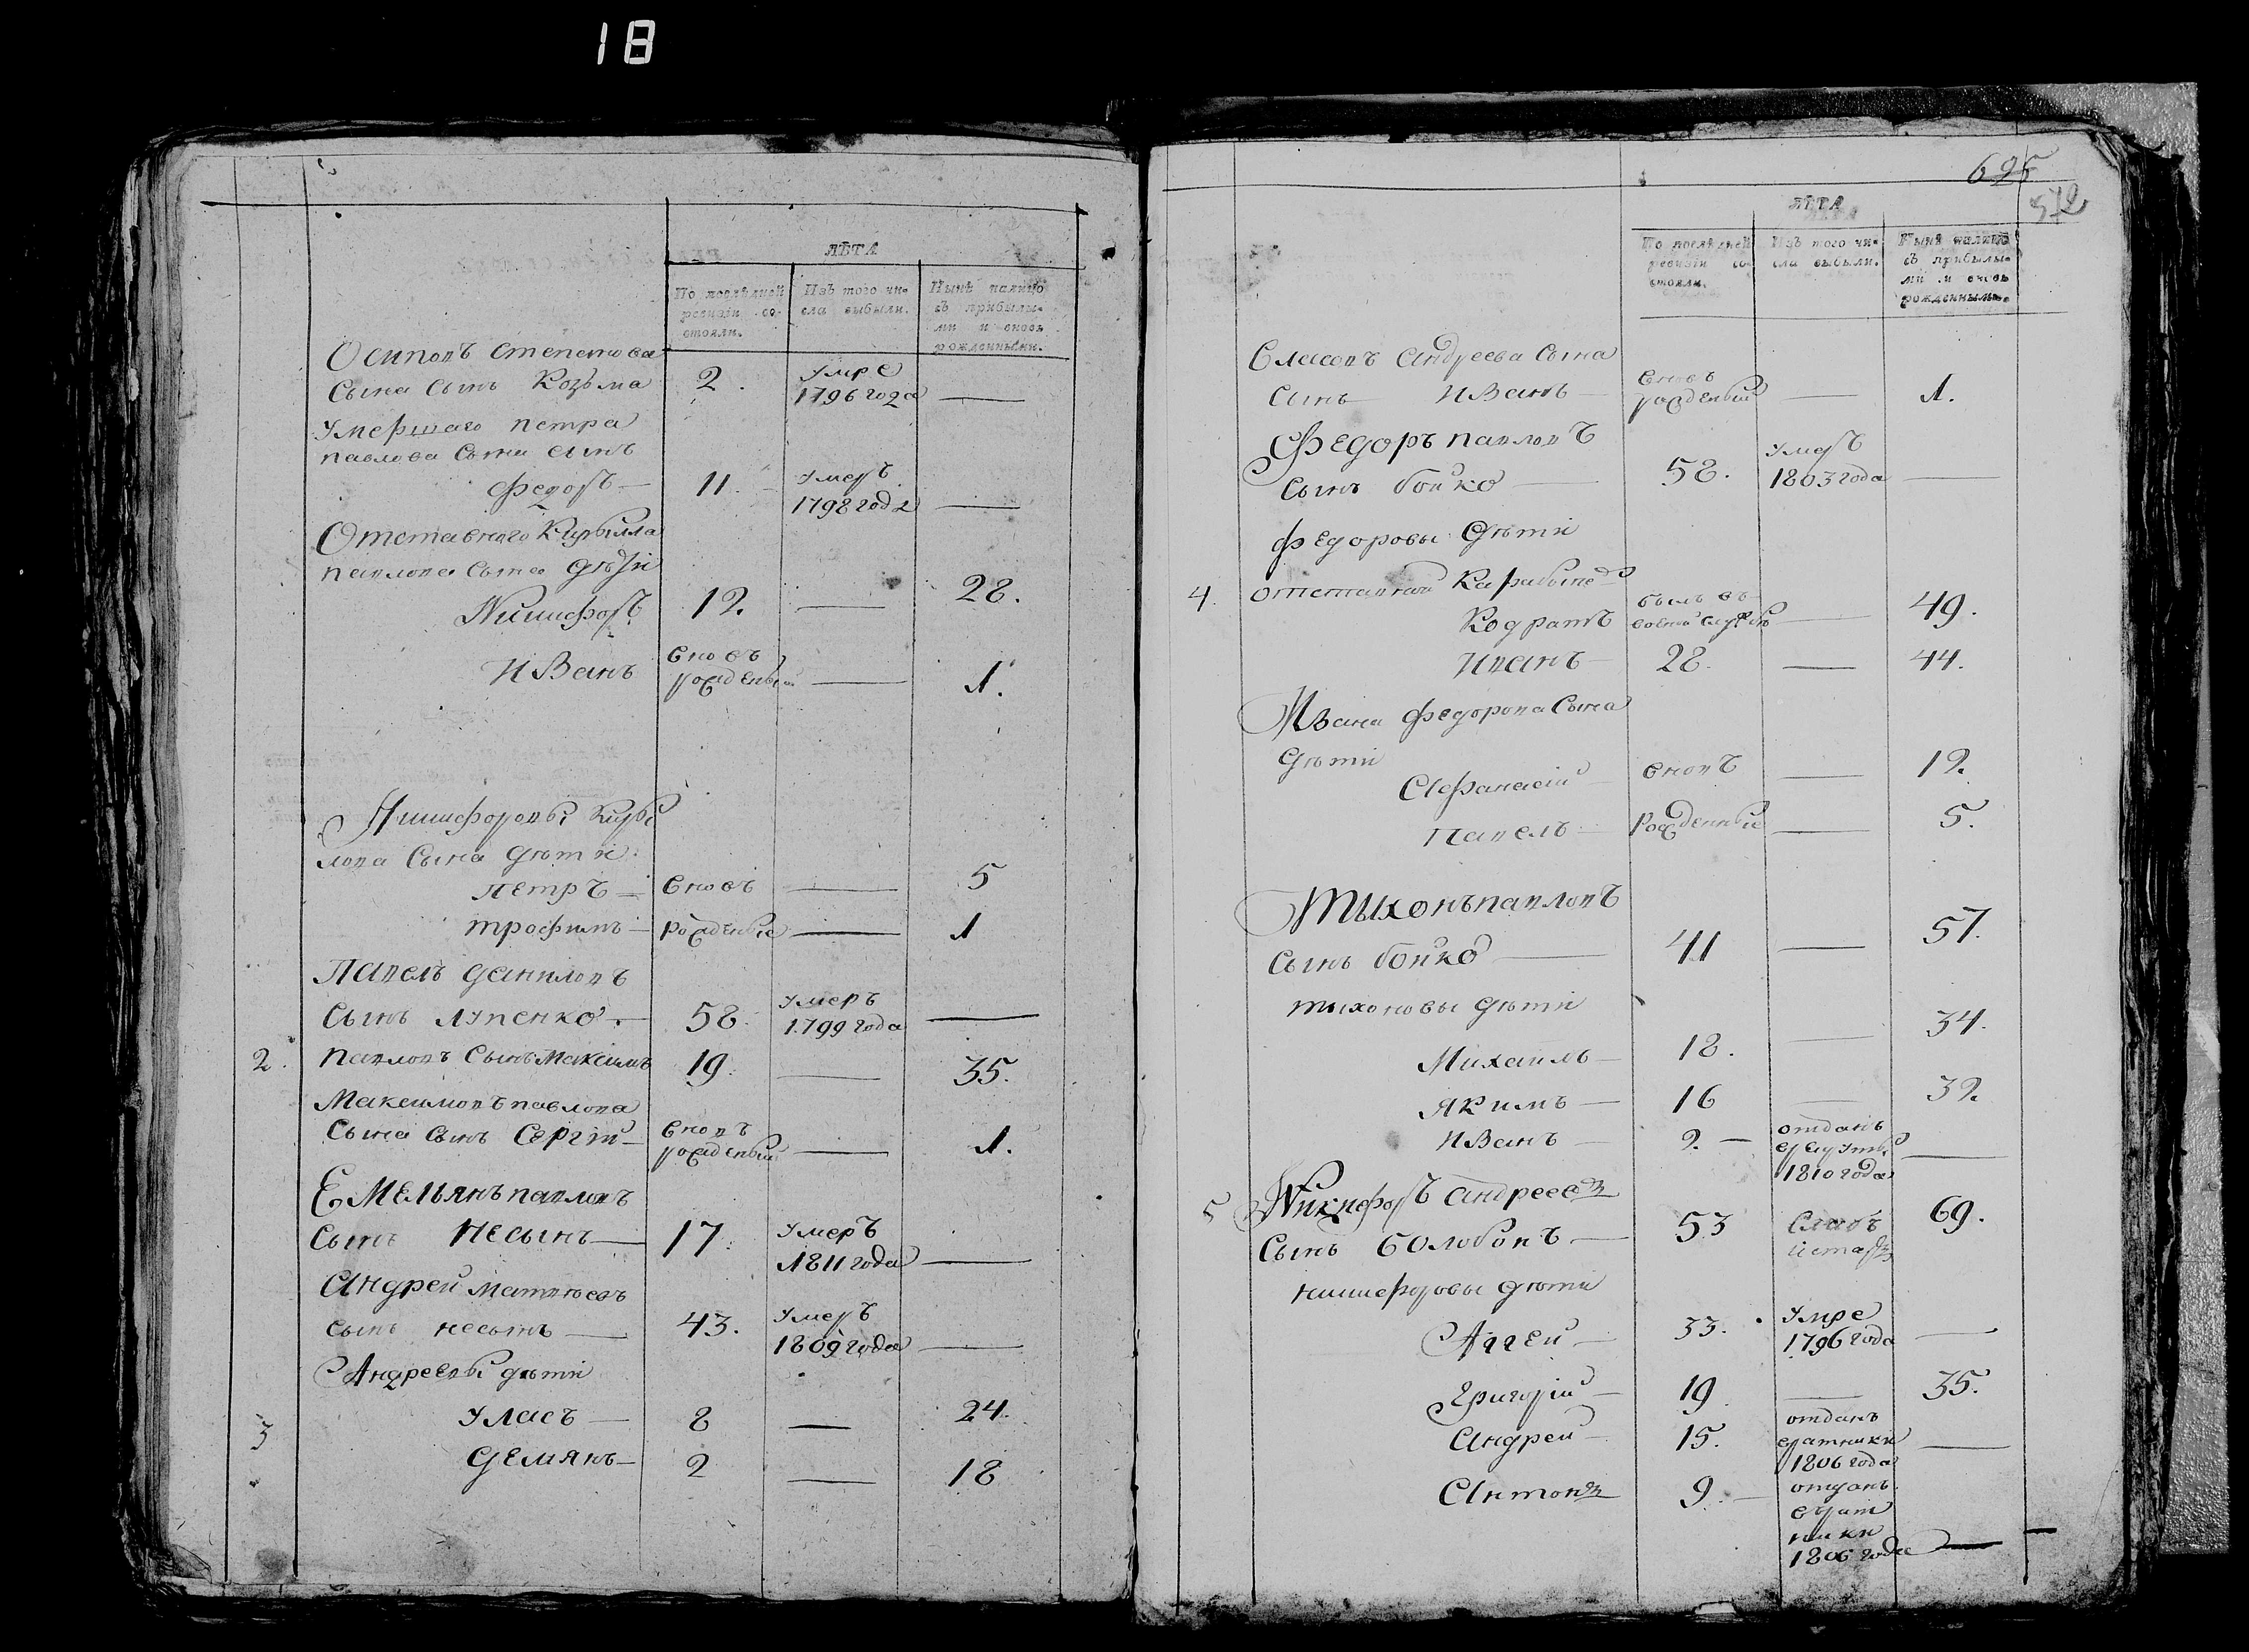 18
ЛѢТА
По послѣдней ревизіи со-стояли.
Изъ того чи-сла выбыли.
Нынѣ налицо съ прибылы-ми и вновь рожденными.
Осиповъ Степанова
Сына Сынъ Козьма 2. Умре 1796 года —
Умершаго Петра
Павлова Сына сынъ
Федоръ — 11. Умеръ 1798 года —
Отставного Кирилла
Павлова Сына дѣти
Никифоръ 12. — 28.
Иванъ вновь рожденый — 1.
Никифоровы Кири
лова Сына дѣти
Петръ — вновь — 5
Трофимъ — рожденые — 1
Павелъ Даниловъ
Сынъ Лупенко. — 58. умеръ 1799 года —
2. Павловъ Сынъ Максимъ 19. — 35.
Максимовъ Павлова
Сына Сынъ Сергій — вновъ рожденый — 1.
Емельянъ Павловъ
Сынъ Несынъ — 17. умеръ 1811 года —
Андрей Матвѣевъ
сынъ несынъ — 43. умеръ 1809 года —
Андреевы дѣти
3 Уласъ — 8 — 24.
Демянъ — 2 — 18
625
572
ЛѢТА
По послѣдней ревизіи со-стояли.
Изъ того чи-сла выбыли.
Нынѣ налицо съ прибылы-ми и вновь рожденными.
Власовъ Андреева Сына
Сынъ Иванъ — вновь рожденый — 1.
Федоръ Павловъ
Сынъ бойко — 58. Умеръ 1803 года —
Федоровы дѣти
4. отставной
Кодратъ былъ въ военой службѣ — 49.
Иванъ — 28. — 44.
Ивана Федорова Сына
дѣти
Афанасій — вновъ — 12.
Павелъ — Рожденные — 5.
Тихонъ Павловъ
Сынъ бойко — 41 — 57.
тихоновы дѣти
Михаилъ — 18. — 34.
Якимъ — 16 — 32.
Иванъ — 2. — отданъ врекруты 1810 года —
5 Никифоръ Андреевъ
Сынъ болобонъ — 53 слабъ истаръ 69.
никифоровы дѣти
Аггей — 33. Умре 1796 года —
Григорій — 19 — 35.
Андрей — 15. отданъ вратники 1806 года —
Антонъ 9. — отданъ врат
ники
1806 года —